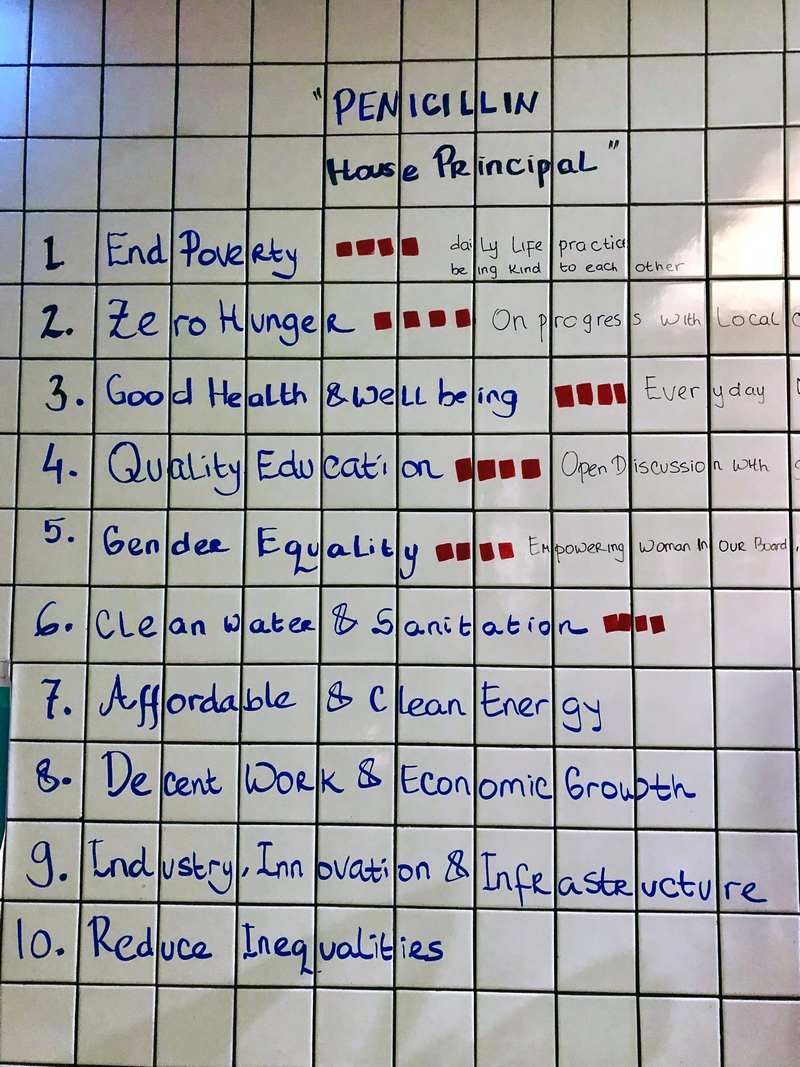 "PENICILLIN
House Principal"
1 End Poverty daily Life practic
being Kind to each other
2. Zero Hunger On progress with Local
3. Good Health & Well being Everyday
4. Quality Education Open Discussion with
5. Gender Equality Empowering Woman In Our Board,
6. Clean water & Sanitation
7. Affordable & Clean Energy
8. Decent Work & Economic Growth
9. Industry, Innovation & Infrastructure
10. Reduce Inequalities